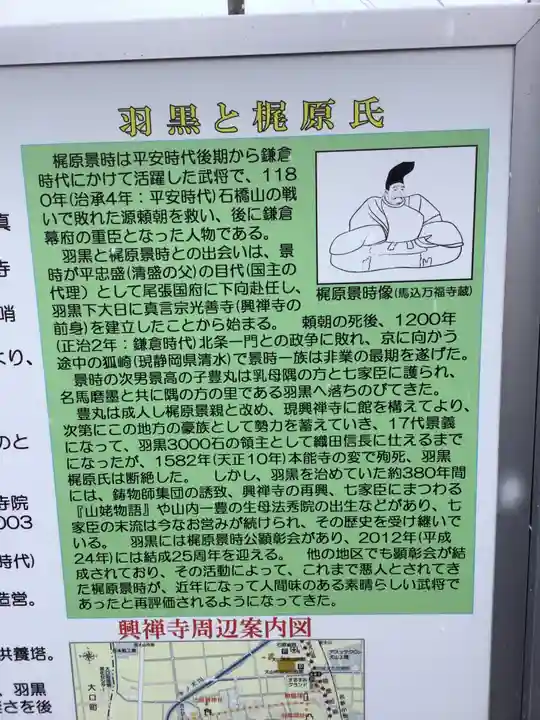 羽黒と梶原氏
梶原景時は平安時代後期から鎌倉
時代にかけて活躍した武将で、118
0年(治承4年：平安時代)石橋山の戦
いで敗れた源頼朝を救い、後に鎌倉
幕府の重臣となった人物である。
羽黒と梶原景時との出会いは、景
時が平忠盛(清盛の父)の目代(国主の
代理）として尾張国府に下向赴任し、
羽黒下大日に真言宗光善寺(興禅寺の
前身)を建立したことから始まる。　頼朝の死後、1200年
(正治2年：鎌倉時代)北条一門との政争に敗れ、京に向かう
途中の狐崎(現静岡県清水)で景時一族は非業の最期を遂げた。
景時の次男景高の子豊丸は乳母隅の方と七家臣に護られ、
名馬磨墨と共に隅の方の里である羽黒へ落ちのびてきた。
豊丸は成人し梶原景親と改め、現興禅寺に館を構えてより、
次第にこの地方の豪族として勢力を蓄えていき、17代景義
になって、羽黒3000石の領主として織田信長に仕えるまで
になったが、1582年(天正10年)本能寺の変で殉死、羽黒
梶原氏は断絶した。　しかし、羽黒を治めていた約380年間
には、鋳物師集団の誘致、興禅寺の再興、七家臣にまつわる
『山姥物語』や山内一豊の生母法秀院の出生などがあり、七
家臣の末流は今なお営みが続けられ、その歴史を受け継いで
いる。　羽黒には梶原景時公顕彰会があり、2012年(平成
24年)には結成25周年を迎える。　他の地区でも顕彰会が結
成されており、その活動によって、これまで悪人とされてき
た梶原景時が、近年になって人間味のある素晴らしい武将で
あったと再評価されるようになってきた。
梶原景時像(馬込万福寺蔵)
興禅寺周辺案内図
大口町
真
寺
哨
より、
のと
寺院
003
時代)
造営。
共養塔。
、羽黒
さを後